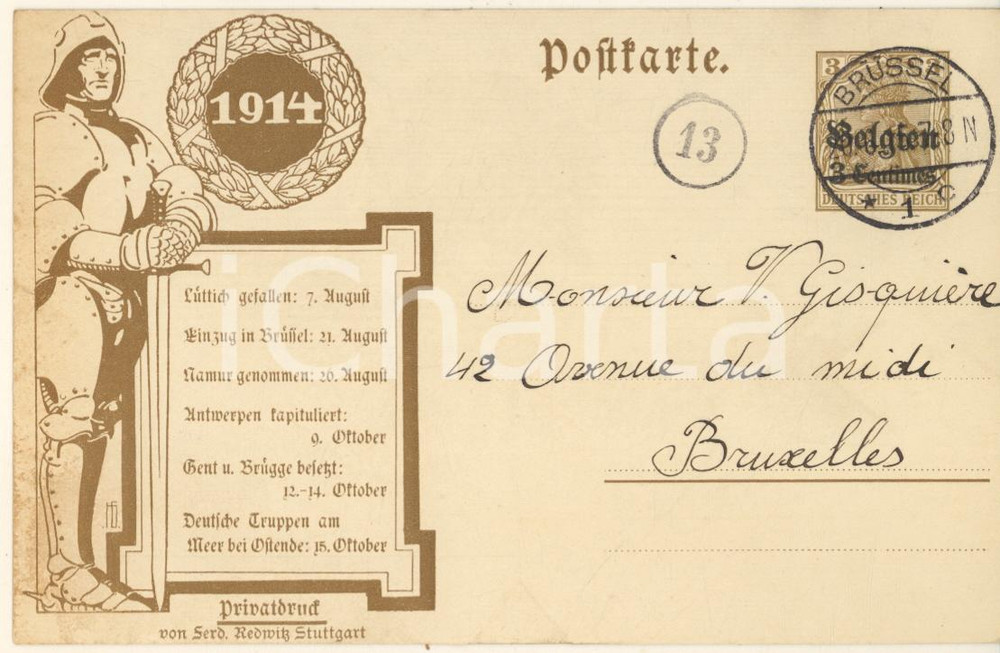 1914
Postkarte.
13
3
BRÜSSEL
7-8 N
Belgien
3 Centimes
DEUTSCHES REICH
* 1 C
Lüttich gefallen: 7. August
Einzug in Brüssel: 21. August
Namur genommen: 26. August
Antwerpen kapituliert:
9. Oktober
Gent u. Brügge besetzt:
12.-14. Oktober
Deutsche Truppen am
Meer bei Ostende: 15. Oktober
Privatdruck
von Ferd. Redwitz Stuttgart
Monsieur V. Gisquière
42 Avenue du midi
Bruxelles
iCharta